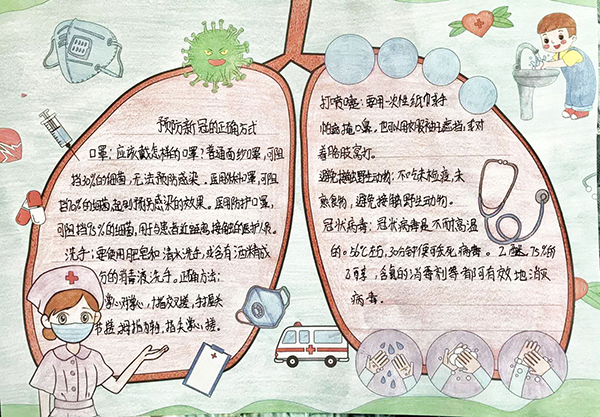 预防新冠的正确方式
口罩：应该戴怎样的口罩？普通面纱口罩，可阻
挡30%的细菌，无法预防感染。医用外科口罩，可阻
挡70%的细菌，起到预防感染的效果。医用防护口罩，
可阻挡95%的细菌，用于患者近距离接触的医护人员。
洗手：要使用肥皂和清水洗手，或含有酒精成
分的消毒液洗手。正确方法：
掌心对掌心，十指交叉搓，手握关
节搓，拇指为轴，指尖掌心搓。
打喷嚏：要用一次性纸巾或手
帕遮掩口鼻，也可以用衣服袖子遮挡，或对
着胳膊窝打。
避免接触野生动物：不吃未检疫，未
熟食物，避免接触野生动物。
冠状病毒：冠状病毒是不耐高温
的。56℃左右，30分钟便可灭死病毒。乙醚、75%的
乙醇，含氯的消毒剂等都可有效地消灭
病毒。